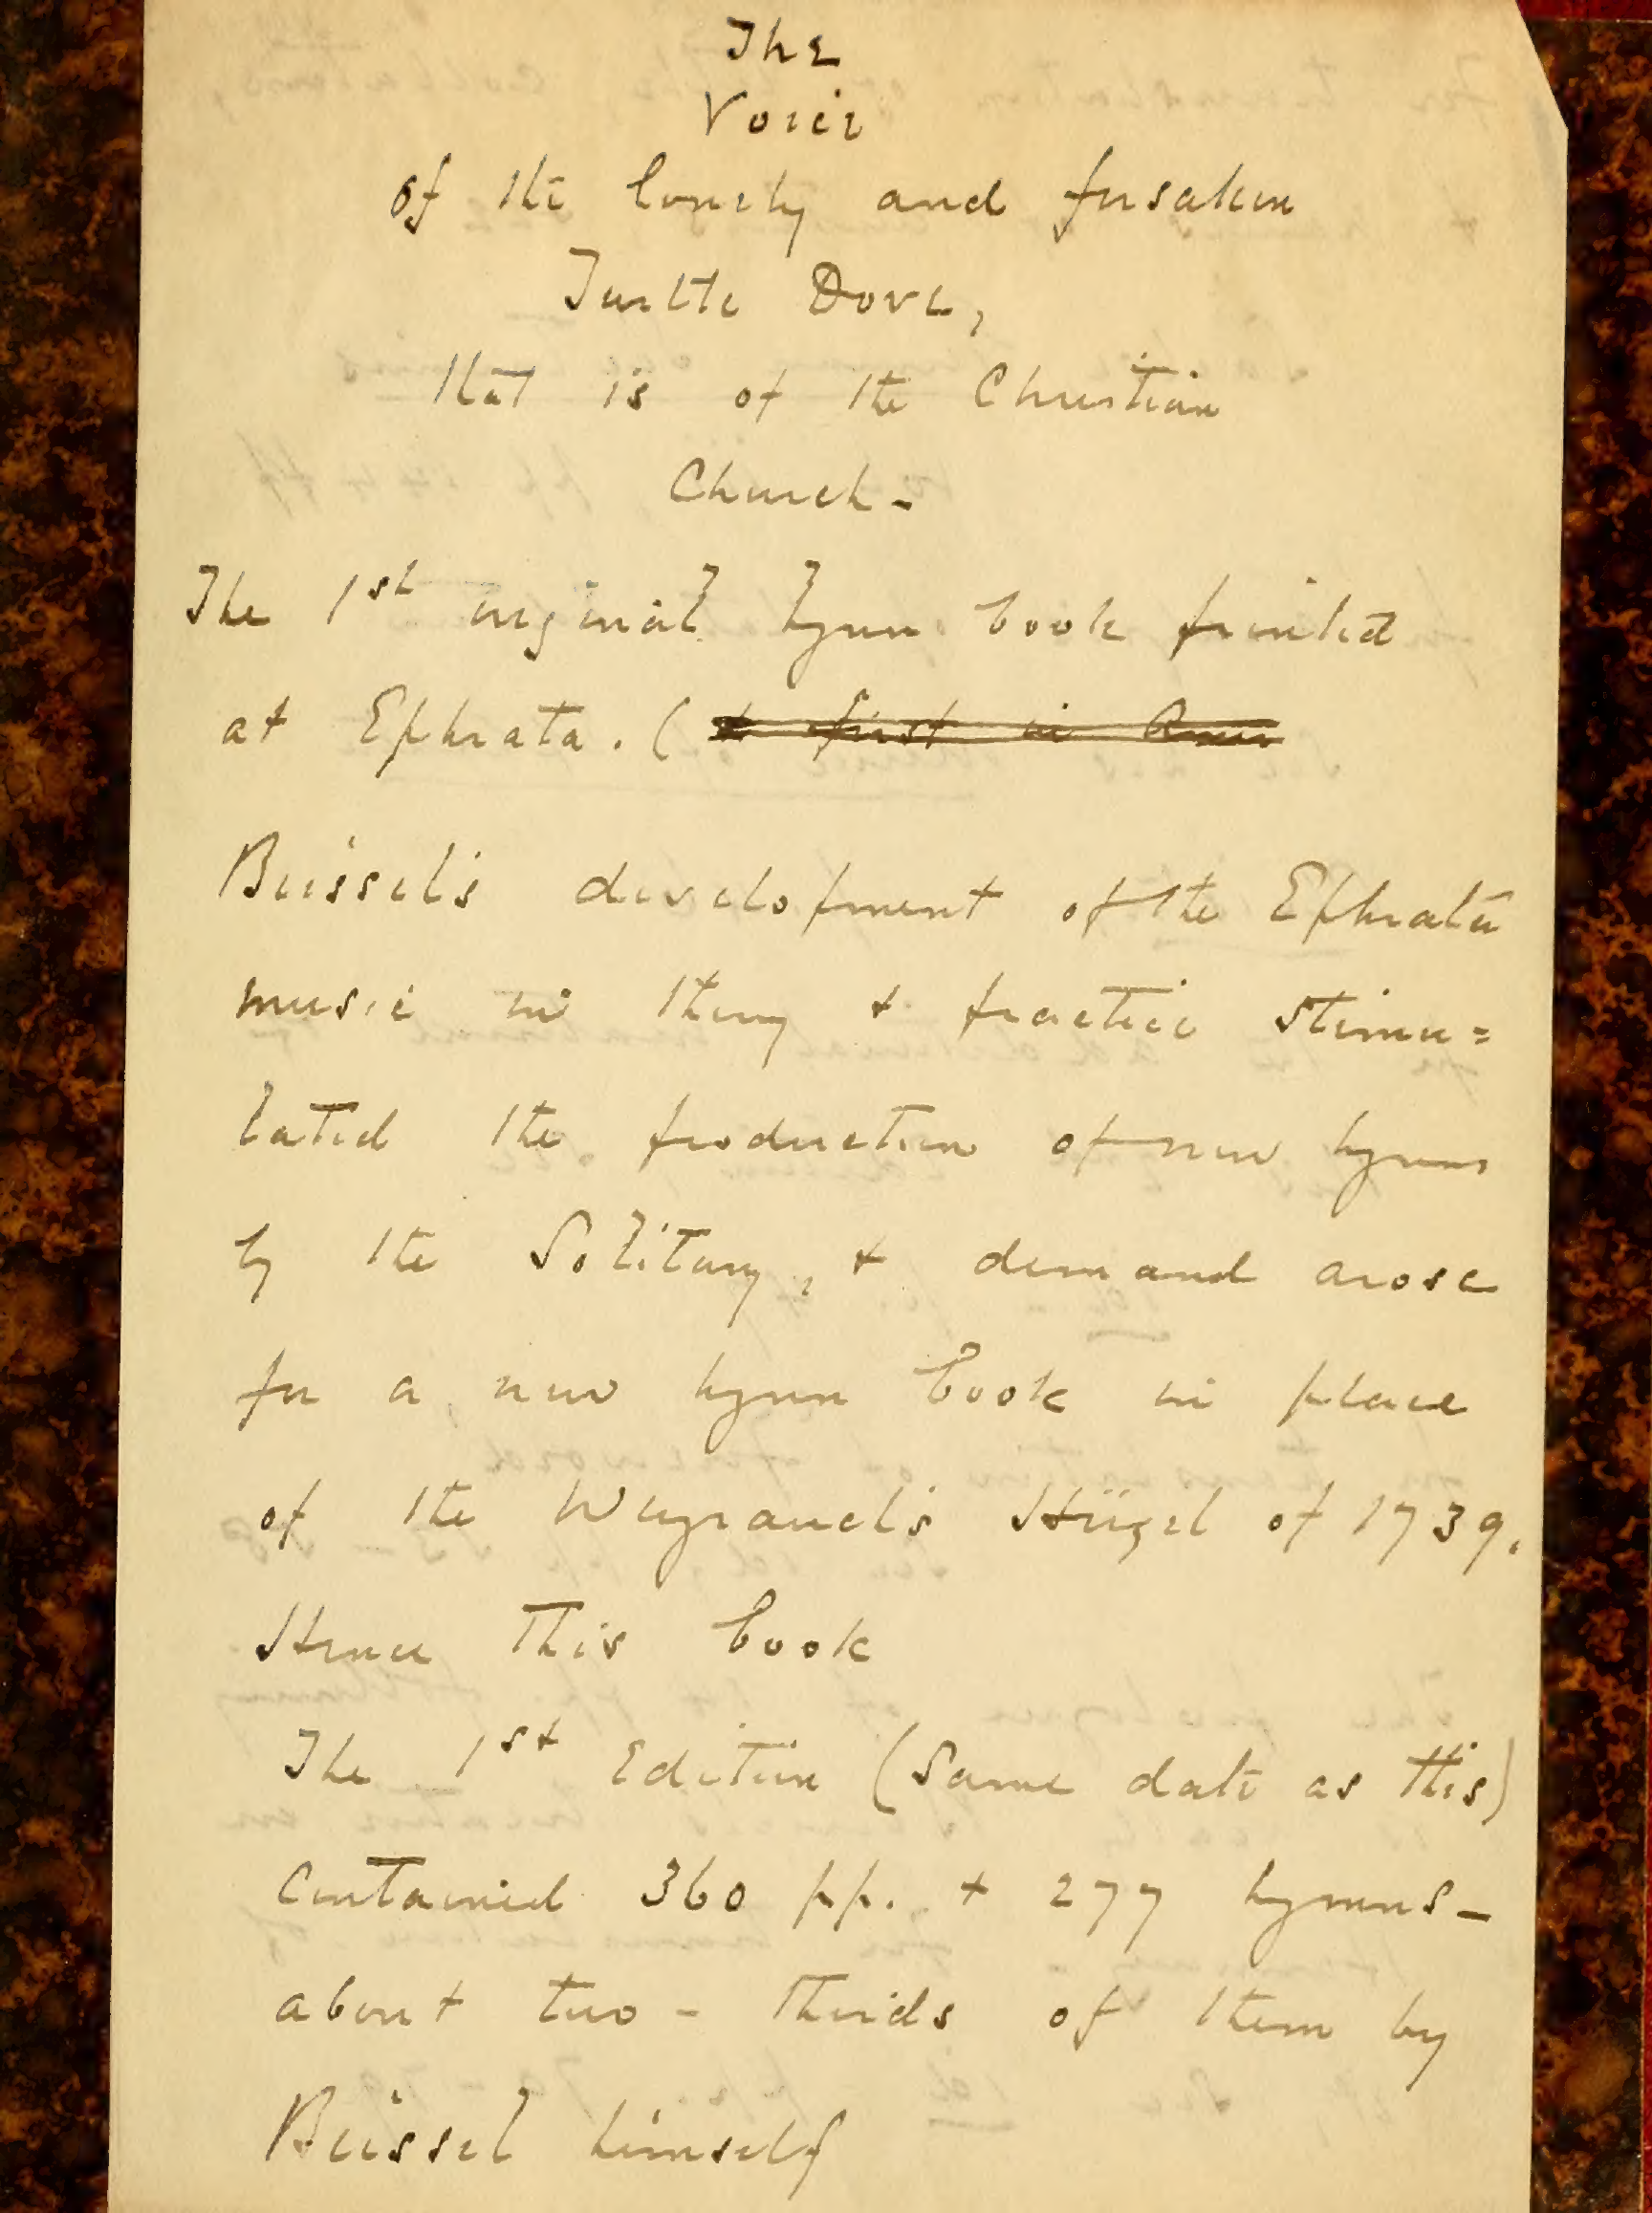 The
Voice
of the lonely and forsaken
Turtle Dove,
that is of the Christian
Church -
The 1st original hymn book printed
at Ephrata. ( & first in Amer
Beissel's development of the Ephrata
music in theory & practice stimu=
lated the production of new hymns
by the Solitary, & demand arose
for a new hymn book in place
of the Weyrauch's Hügel of 1739.
Hence this book
The 1st Edition (same date as this)
contained 360 pp. & 277 hymns -
about two - thirds of them by
Beissel himself